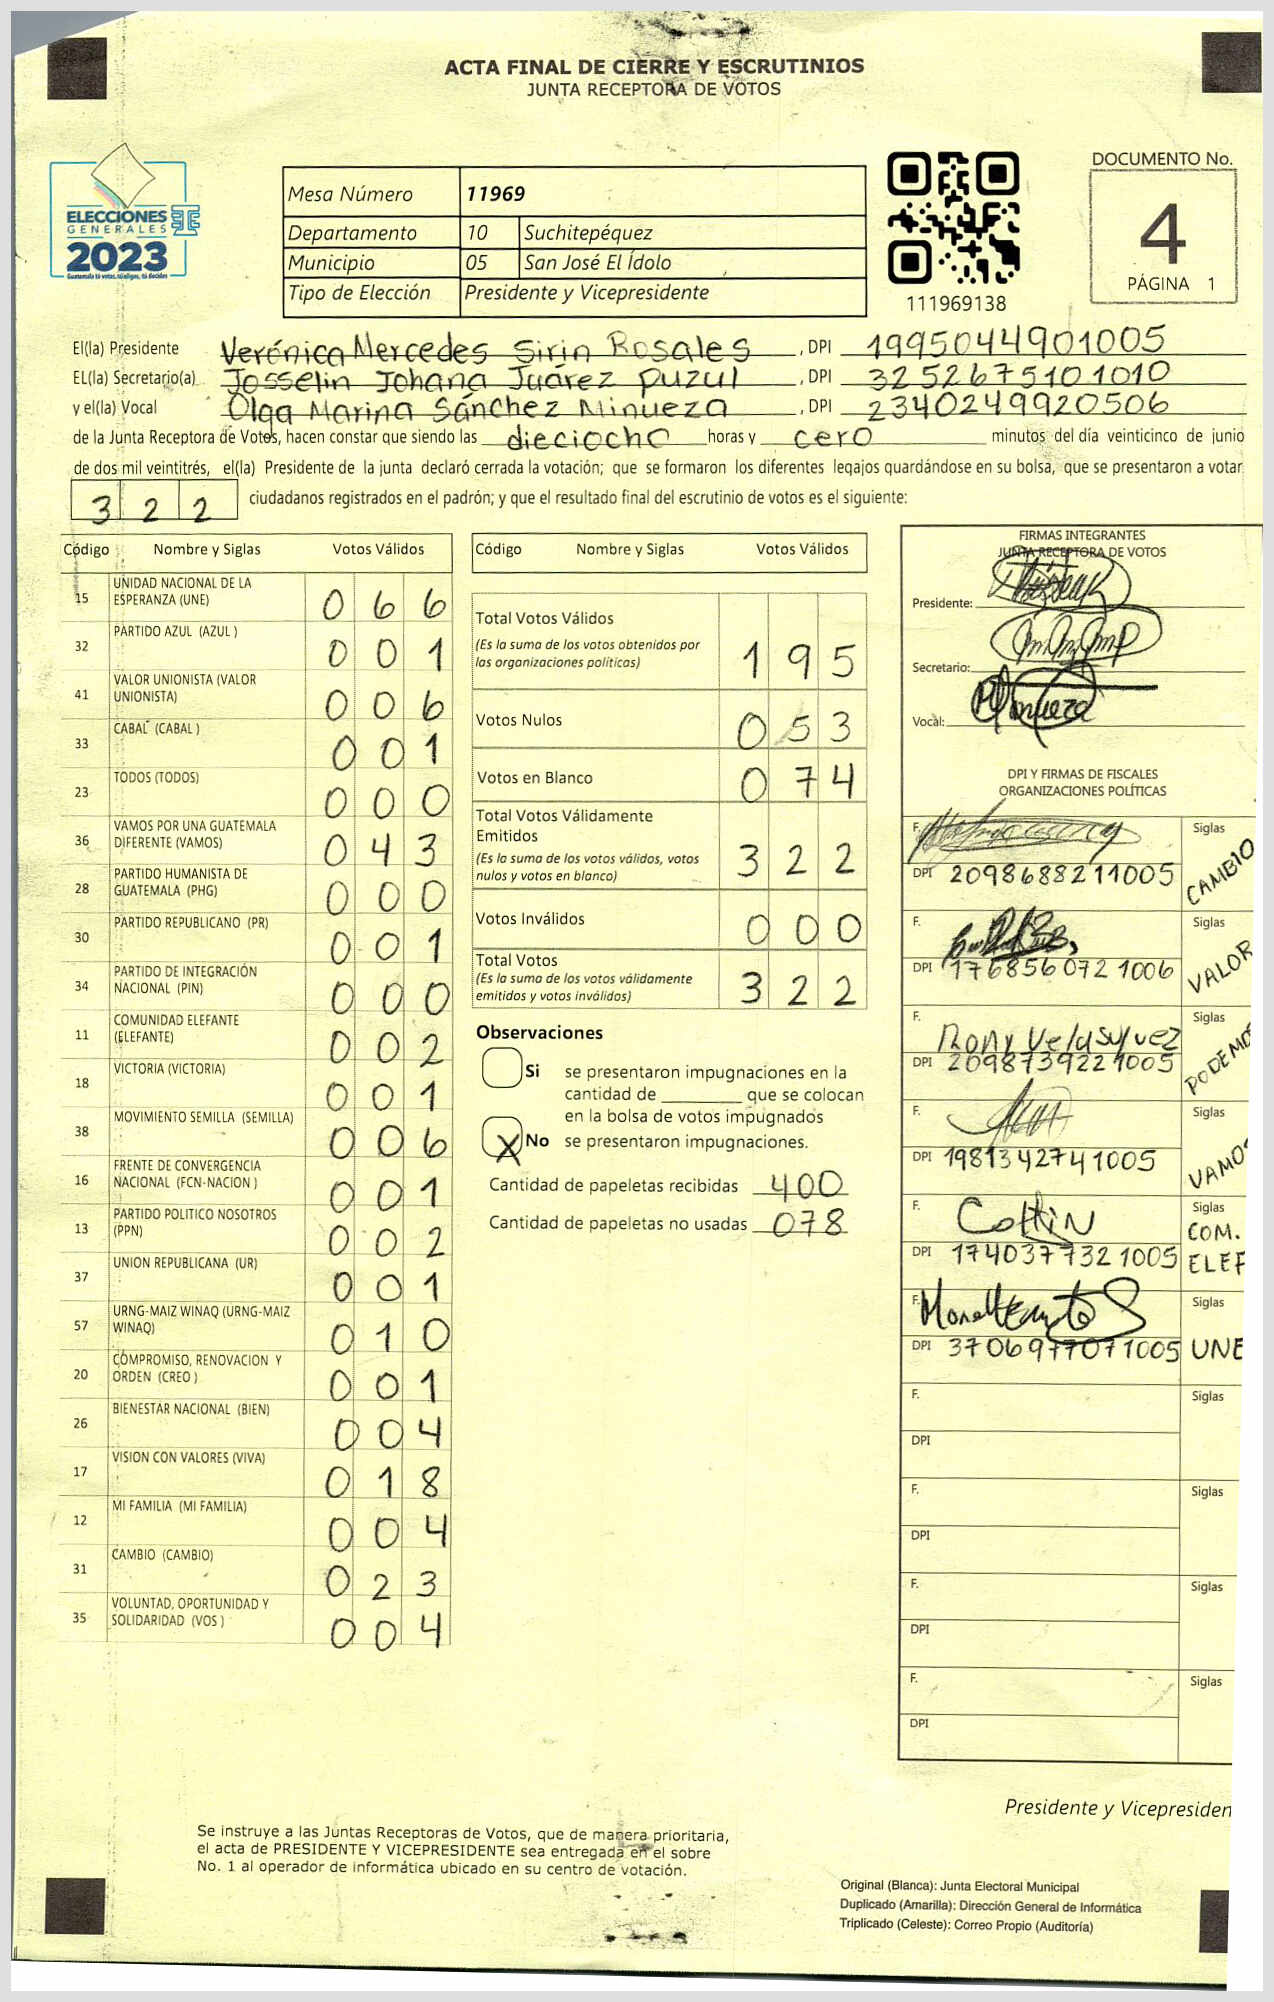 ACTA FINAL DE CIERRE Y ESCRUTINIOS
JUNTA RECEPTORA DE VOTOS
ELECCIONES
GENERALES
2023
Guatemala tú votas, tú eliges, tú decides
Mesa Número 11969
Departamento 10 Suchitepéquez
Municipio 05 San José El Ídolo
Tipo de Elección Presidente y Vicepresidente
111969138
DOCUMENTO No.
4
PÁGINA 1
El(la) Presidente Verónica Mercedes Sirin Rosales , DPI 1995044901005
EL(la) Secretario(a) Josselin Johana Juárez Puzul , DPI 3252675101010
y el(la) Vocal Olga Marina Sánchez Minueza , DPI 2340249920506
de la Junta Receptora de Votos, hacen constar que siendo las dieciocho horas y cero minutos del día veinticinco de junio
de dos mil veintitrés, el(la) Presidente de la junta declaró cerrada la votación; que se formaron los diferentes legajos guardándose en su bolsa, que se presentaron a votar
322 ciudadanos registrados en el padrón; y que el resultado final del escrutinio de votos es el siguiente:
Código Nombre y Siglas Votos Válidos
15 UNIDAD NACIONAL DE LA ESPERANZA (UNE) 066
32 PARTIDO AZUL (AZUL ) 001
41 VALOR UNIONISTA (VALOR UNIONISTA) 006
33 CABAL (CABAL ) 001
23 TODOS (TODOS) 000
36 VAMOS POR UNA GUATEMALA DIFERENTE (VAMOS) 043
28 PARTIDO HUMANISTA DE GUATEMALA (PHG) 000
30 PARTIDO REPUBLICANO (PR) 001
34 PARTIDO DE INTEGRACIÓN NACIONAL (PIN) 000
11 COMUNIDAD ELEFANTE (ELEFANTE) 002
18 VICTORIA (VICTORIA) 001
38 MOVIMIENTO SEMILLA (SEMILLA) 006
16 FRENTE DE CONVERGENCIA NACIONAL (FCN-NACION ) 001
13 PARTIDO POLITICO NOSOTROS (PPN) 002
37 UNION REPUBLICANA (UR) 001
57 URNG-MAIZ WINAQ (URNG-MAIZ WINAQ) 010
20 COMPROMISO, RENOVACION Y ORDEN (CREO ) 001
26 BIENESTAR NACIONAL (BIEN) 004
17 VISION CON VALORES (VIVA) 018
12 MI FAMILIA (MI FAMILIA) 004
31 CAMBIO (CAMBIO) 023
35 VOLUNTAD, OPORTUNIDAD Y SOLIDARIDAD (VOS ) 004
Código Nombre y Siglas Votos Válidos
Total Votos Válidos
(Es la suma de los votos obtenidos por las organizaciones políticas) 195
Votos Nulos 053
Votos en Blanco 074
Total Votos Válidamente Emitidos
(Es la suma de los votos válidos, votos nulos y votos en blanco) 322
Votos Inválidos 000
Total Votos
(Es la suma de los votos válidamente emitidos y votos inválidos) 322
Observaciones
Si se presentaron impugnaciones en la
cantidad de ________ que se colocan
en la bolsa de votos impugnados
X No se presentaron impugnaciones.
Cantidad de papeletas recibidas 400
Cantidad de papeletas no usadas 078
FIRMAS INTEGRANTES
JUNTA RECEPTORA DE VOTOS
Presidente:
Secretario:
Vocal: Minueza
DPI Y FIRMAS DE FISCALES
ORGANIZACIONES POLÍTICAS
F. Siglas
DPI 2098688211005 CAMBIO
F. Siglas
DPI 1768560721006 VALOR
F. Rony Velasquez Siglas
DPI 2098739221005 PODEMO
F. Siglas
DPI 1981342741005 VAMOS
F. Siglas
DPI 1740377321005 COM. ELEF
F. Siglas
DPI 3706977071005 UNE
F. Siglas
DPI
F. Siglas
DPI
F. Siglas
DPI
F. Siglas
DPI
Presidente y Vicepresiden
Se instruye a las Juntas Receptoras de Votos, que de manera prioritaria,
el acta de PRESIDENTE Y VICEPRESIDENTE sea entregada en el sobre
No. 1 al operador de informática ubicado en su centro de votación.
Original (Blanca): Junta Electoral Municipal
Duplicado (Amarilla): Dirección General de Informática
Triplicado (Celeste): Correo Propio (Auditoría)